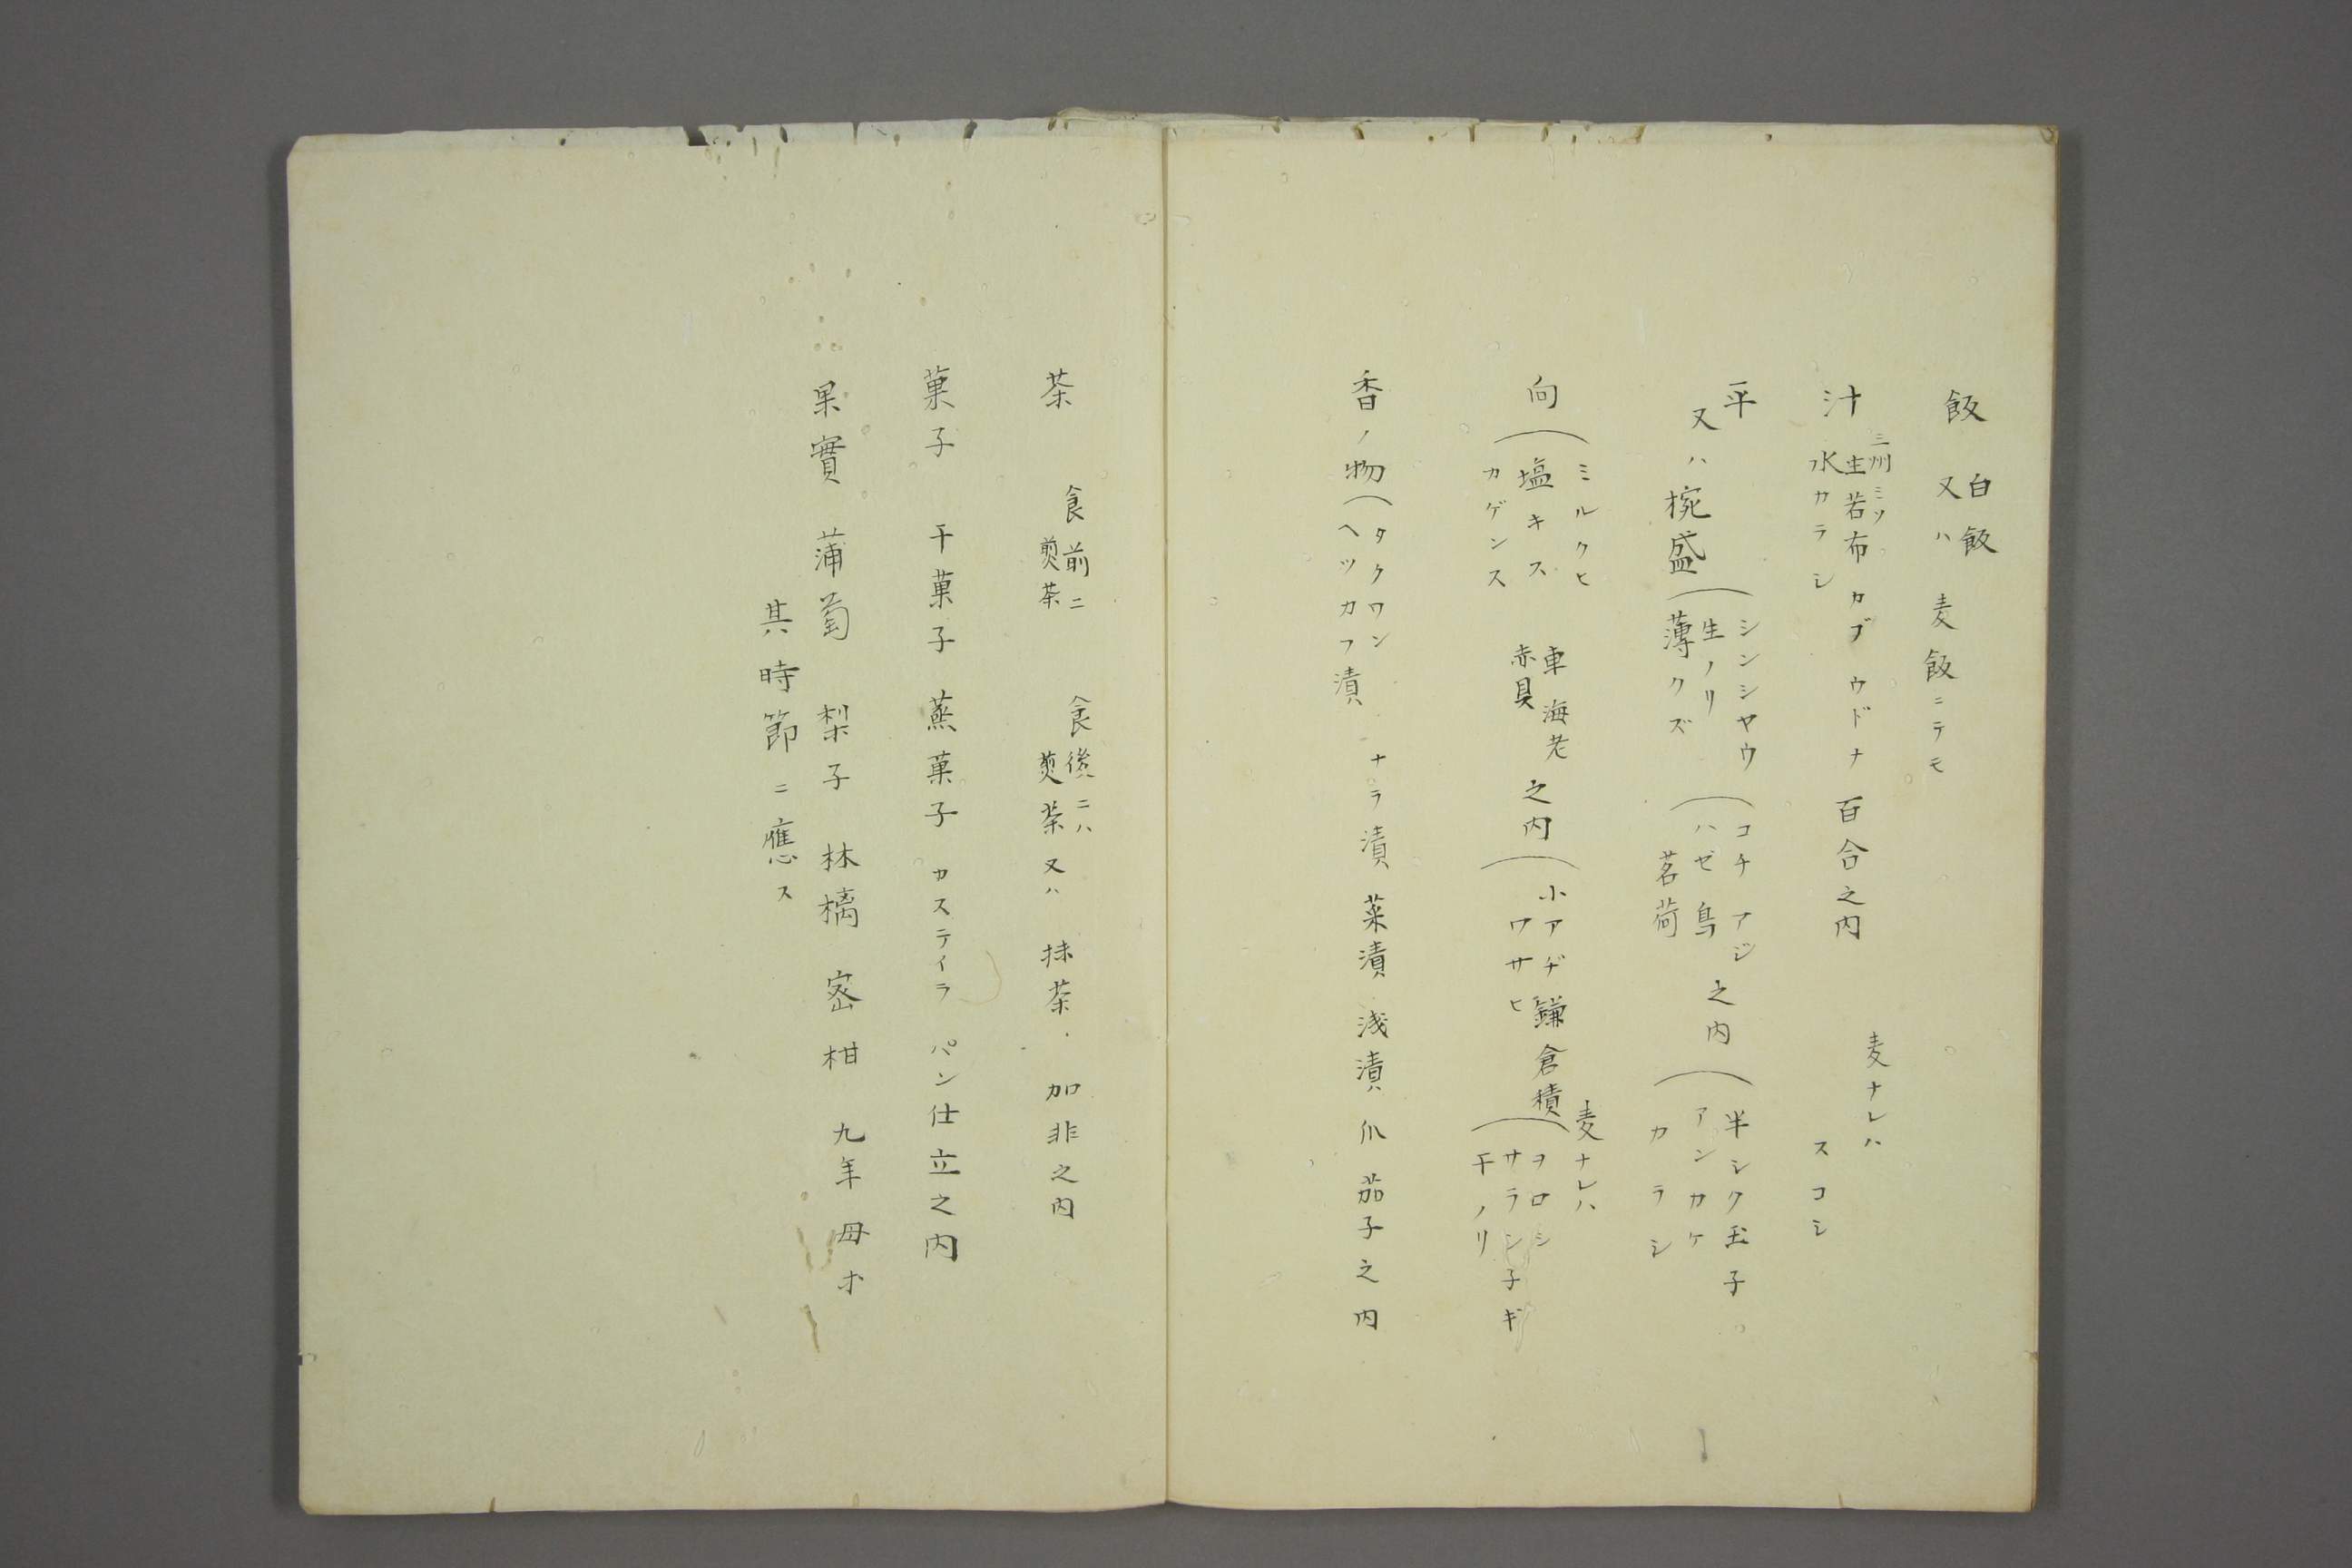 飯 白飯
又ハ 麦飯ニテモ
汁 三州ミソ
生若布 カブ ウドナ 百合之内
水カラシ
麦ナレハ
スコシ
平
又ハ 椀盛
シンシヤウ
生ノリ
薄クズ
コチ アジ
ハゼ 鳥 之内
茗荷
半シク玉子
アンカケ
カラシ
向
ミルクヒ
塩キス
カゲンス
車海老
赤貝
之内
小アヂ鎌倉積
ワサヒ
麦ナレハ
ヲロシ
サラシ子ギ
干ノリ
香ノ物
タクワン
ヘツカフ漬
ナラ漬 菜漬 浅漬 瓜 茄子之内
茶 食前ニ
煎茶
食後ニハ
煎茶又ハ 抹茶 加非之内
菓子 干菓子 蒸菓子 カステイラ パン仕立之内
果實 蒲萄 梨子 林檎 密柑 九年母オ
其時節ニ應ス